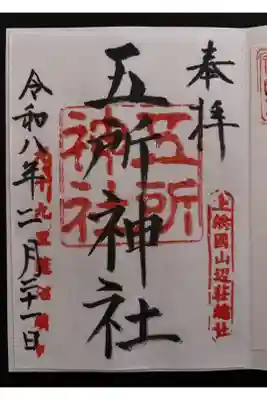 奉拝
上総國山辺荘総社
五所神社
五所神社
令和八年二月二十一日